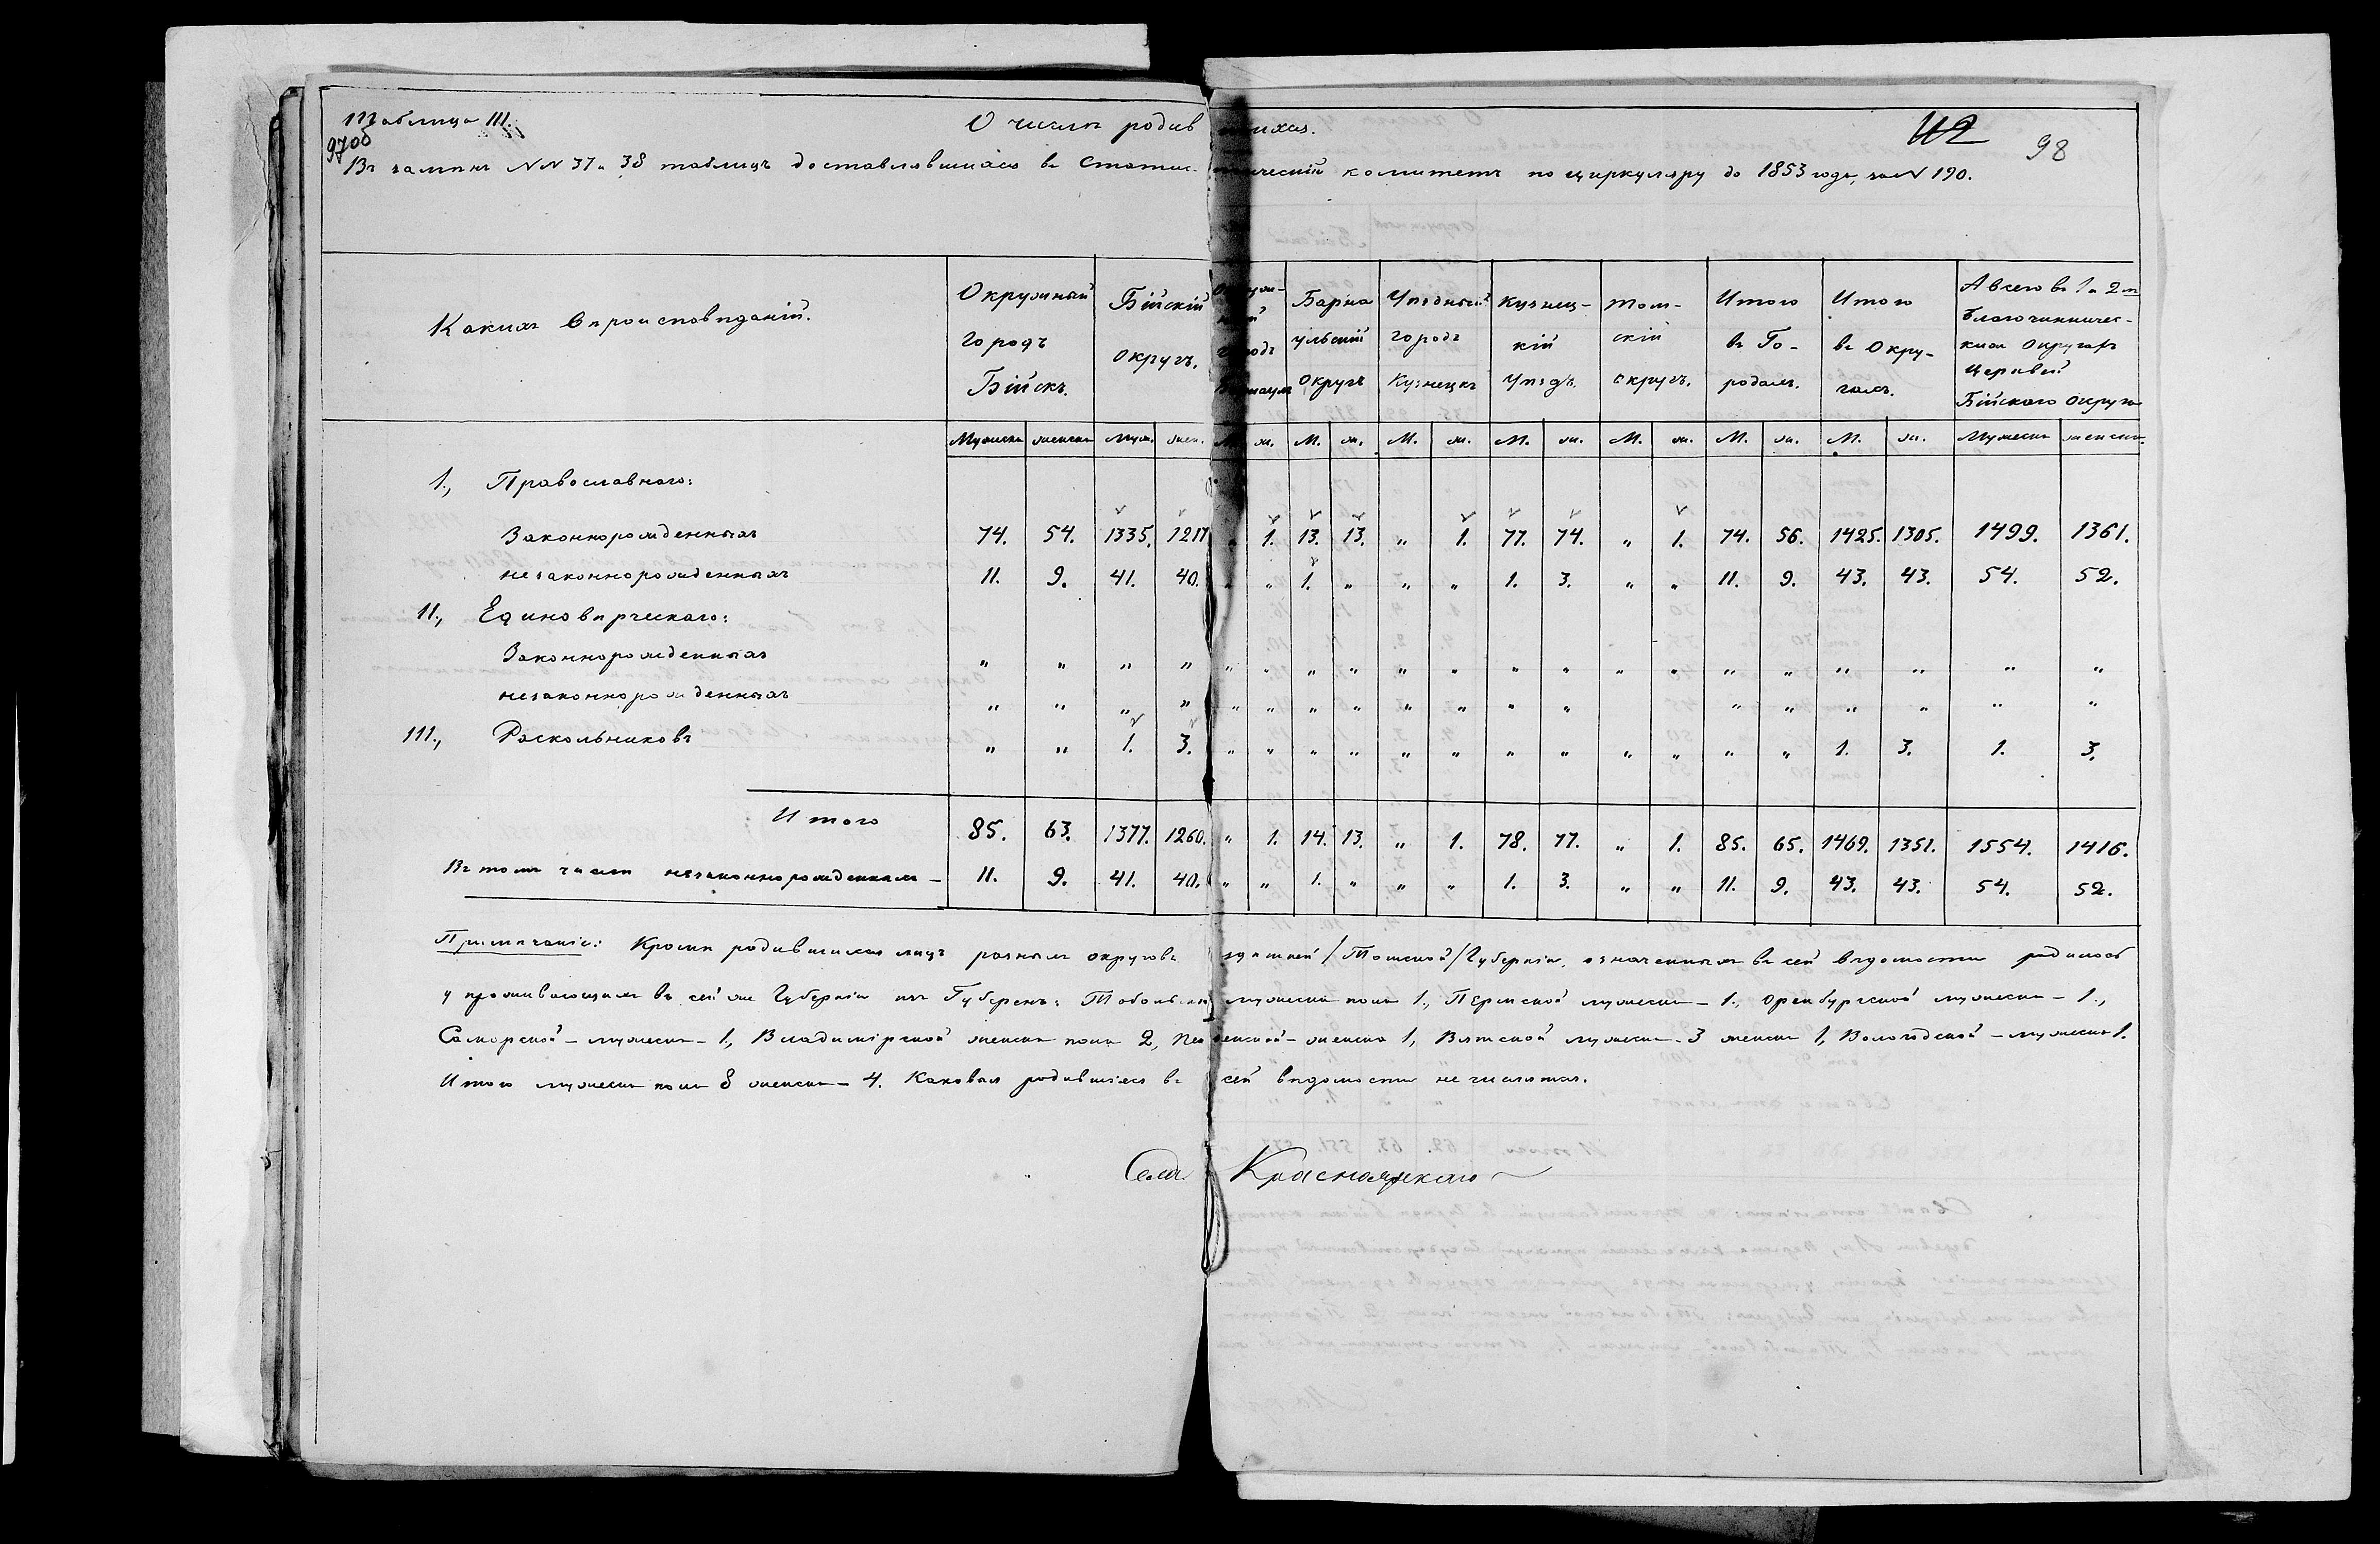 Таблица III.
О числѣ родившихся.
97об
112
98
Въ замѣнъ NN 37 и 38 таблицъ доставлявшихся въ Статистическій комитетъ по циркуляру до 1853 года, за N 190.
Какихъ вѣроисповѣданій. Окружный городъ Бійскъ. Бійскій округъ. Барнаульскій округъ Уѣздный городъ Кузнецкъ Кузнецкій Уѣздъ. Томскій округъ. Итого въ Городахъ. Итого въ Округахъ. А всего въ 1 и 2 м Благочинническихъ Округахъ Церквей Бійскаго Округа
Мужеска женска Муж. жен. М. ж. М. ж. М. ж. М. ж. М. ж. М. ж. М. ж. Мужеска женска.
1., Православнаго:
Законнорожденныхъ 74. 54. 1335. 1217 „ 1. 13. 13. „ 1. 77. 74. „ 1. 74. 56. 1425. 1305. 1499. 1361.
незаконнорожденныхъ 11. 9. 41. 40. „ „ 1. „ „ „ 1. 3. „ „ 11. 9. 43. 43. 54. 52.
11., Единовѣрческаго:
Законнорожденныхъ „ „ „ „ „ „ „ „ „ „ „ „ „ „ „ „ „ „ „ „
незаконнорожденныхъ „ „ „ „ „ „ „ „ „ „ „ „ „ „ „ „ „ „
111., Раскольниковъ „ „ 1. 3. „ „ „ „ „ „ „ „ „ „ „ „ 1. 3. 1. 3.
Итого 85. 63. 1377. 1260. „ 1. 14. 13. „ 1. 78. 77. „ 1. 85. 65. 1469. 1351. 1554. 1416.
Въ томъ числѣ незаконнорожденныхъ – 11. 9. 41. 40. „ „ 1. „ „ „ 1. 3. „ „ 11. 9. 43. 43. 54. 52.
Примѣчаніе: Кромѣ родившихся лицъ разныхъ округовъ здѣшней /Томской/ Губерніи, означенныхъ въ сей вѣдомости родилось
у проживающихъ въ сей же Губерніи изъ Губерній: Тобольской мужеска пола 1., Пермской мужеска – 1., Оренбургской мужеска – 1.,
Самарской – мужеска – 1, Владимірской женска пола 2, Пензенской – женска 1, Вятской мужеска – 3 женска 1, Вологодской – мужеска 1.
Итого мужеска пола 8 женска – 4. Каковыя родившіяся въ сей вѣдомости не числятся.
Села Краснояркаго